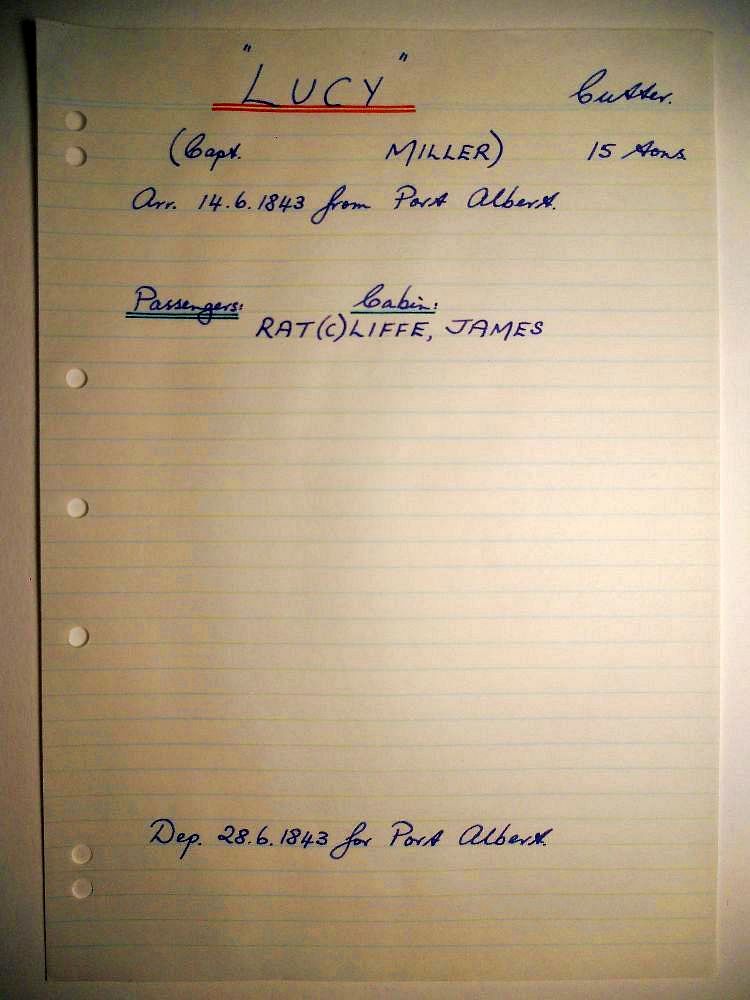 "LUCY" Cutter.
(Capt. MILLER) 15 tons.
Arr. 14.6.1843 from Port Albert.
Passengers: Cabin:
RAT(C)LIFFE, JAMES
Dep. 28.6.1843 for Port Albert.